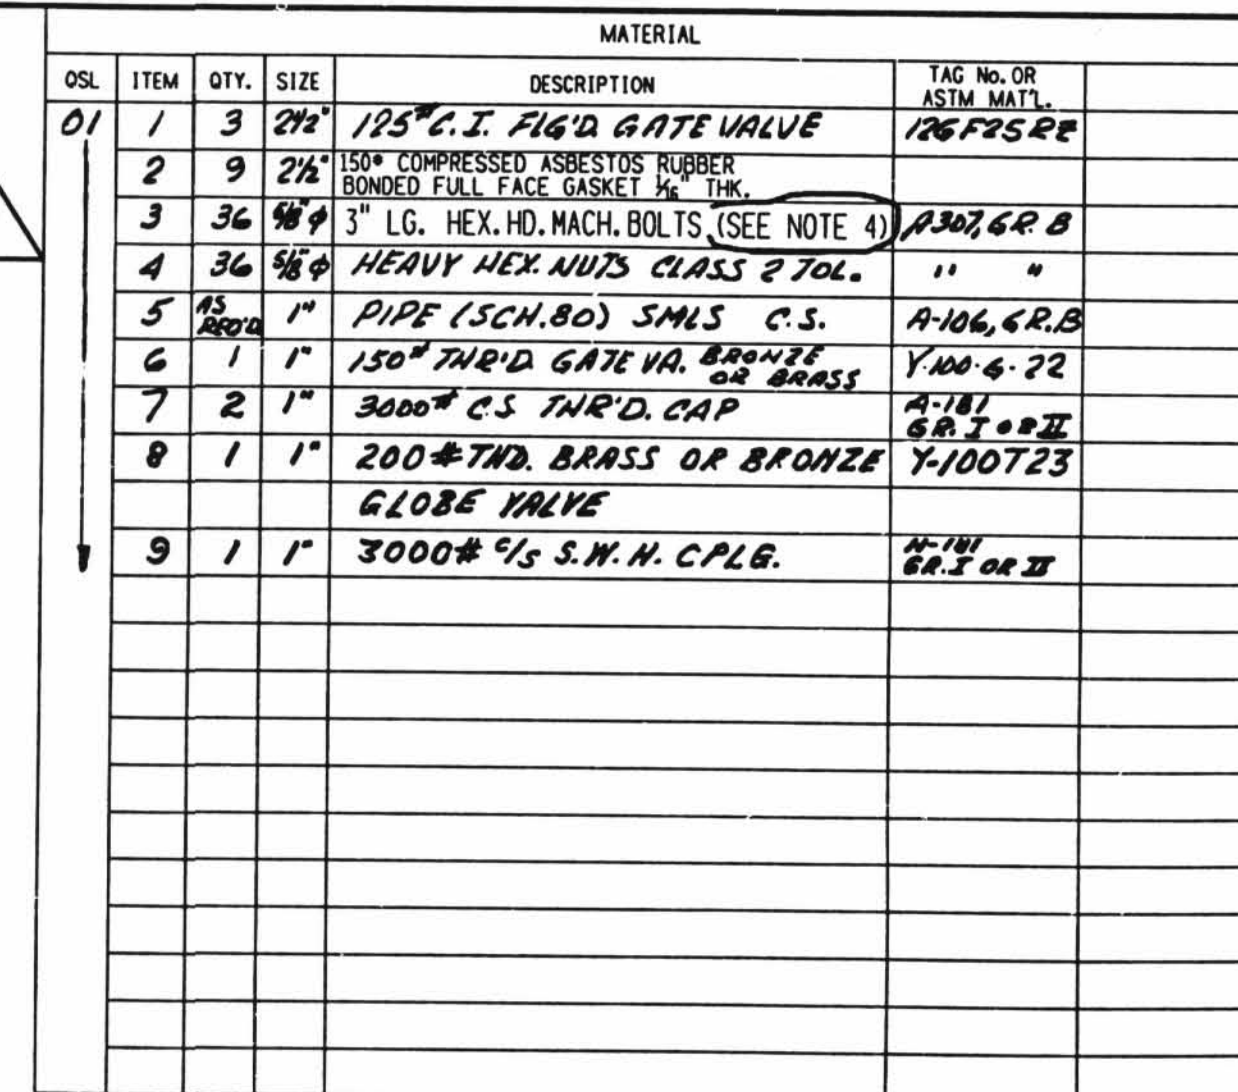 MATERIAL
OSL ITEM QTY. SIZE DESCRIPTION TAG No. OR ASTM MAT'L.
01 1 3 2½" 125# C.I. FLG'D. GATE VALVE 126F25RZ
2 9 2½" 150# COMPRESSED ASBESTOS RUBBER
BONDED FULL FACE GASKET 1/16" THK.
3 36 5/8"φ 3" LG. HEX. HD. MACH. BOLTS (SEE NOTE 4) A307, GR. B
4 36 5/8"φ HEAVY HEX. NUTS CLASS 2 TOL. " "
5 AS REQ'D 1" PIPE (SCH. 80) SMLS C.S. A-106, GR. B
6 1 1" 150# THR'D. GATE VA. BRONZE OR BRASS Y-100-G-22
7 2 1" 3000# C.S THR'D. CAP A-181 GR. I OR II
8 1 1" 200# THD. BRASS OR BRONZE Y-100T23
GLOBE VALVE
9 1 1" 3000# C/S S.W. H. CPLG. A-181 GR. I OR II